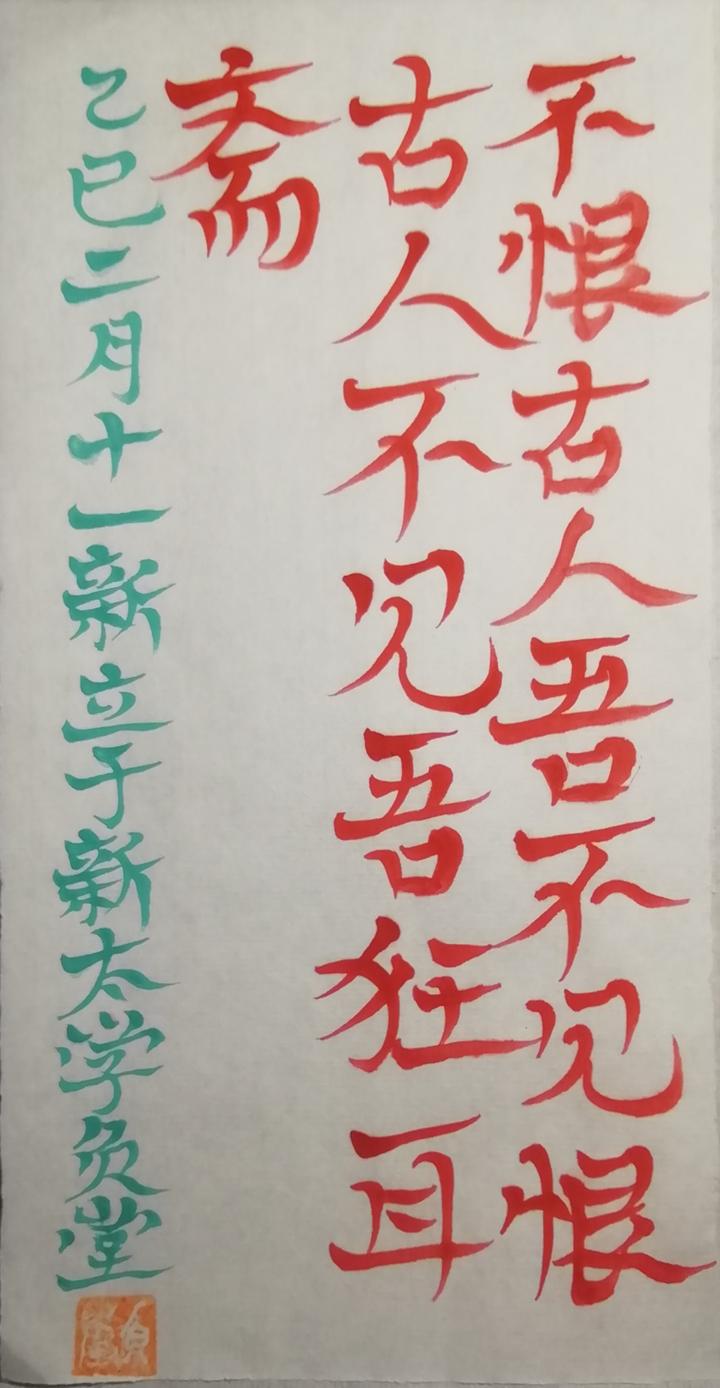 不恨古人吾不见恨
古人不见吾狂耳
斋
乙巳二月十一新立于新太学灸堂